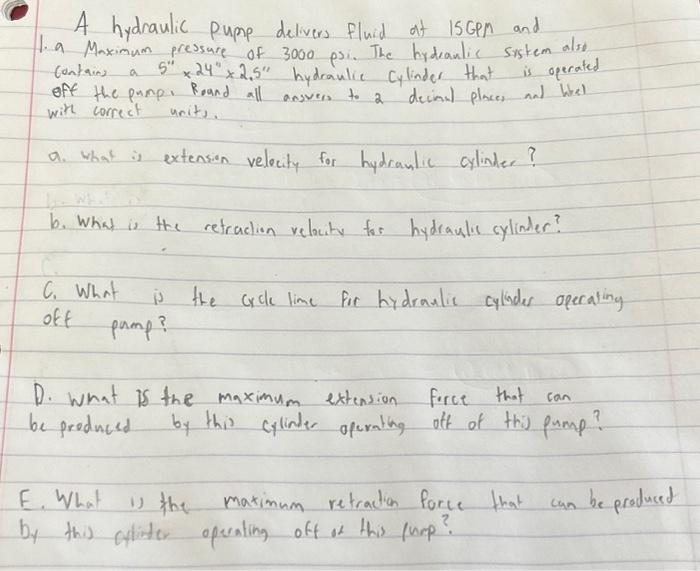 A hydraulic pump delivers fluid at 15GPM and
1. a Maximum pressure of 3000 psi. The hydraulic system also
Contains a 5" x 24" x 2.5" hydraulic Cylinder that is operated
off the pump. Round all answers to 2 decimal places and label
with correct units.
a. what is extension velocity for hydraulic cylinder?
b. What is the retraction velocity for hydraulic cylinder?
C. What is the cycle time for hydraulic cylinder operating
off pump?
D. what is the maximum extension force that can
be produced by this cylinder operating off of this pump?
E. What is the maximum retraction force that can be produced
by this cylinder operating off of this pump?